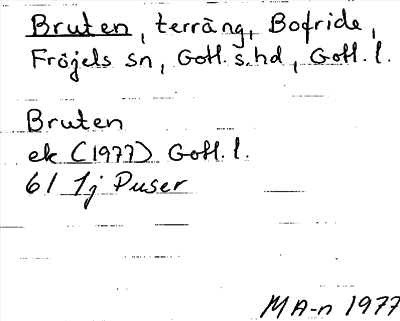 Bruten, terräng, Bofride,
Fröjels sn, Gotl. s. hd, Gotl. l.
Bruten
ek (1977) Gotl. l.
6 I 1j Puser
MA-n 1977